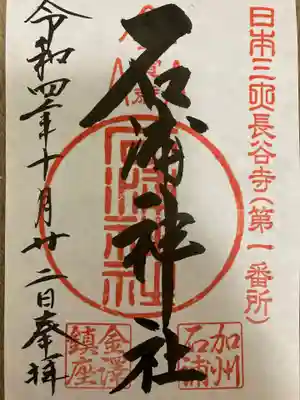 日本三大長谷寺(第一番所)
加州
石浦
石浦神社
石浦神社
金澤
鎮座
令和四年十月廿二日奉拝